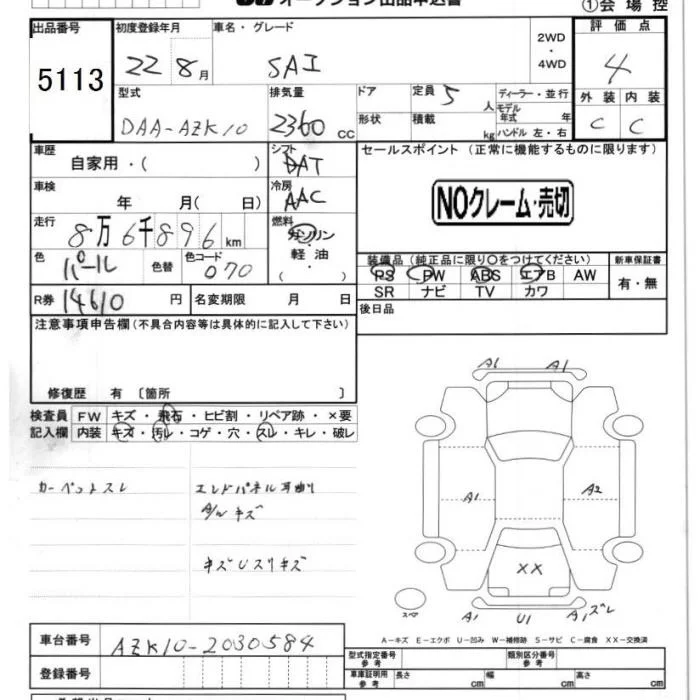 オークション出品申込書
①会場控
出品番号 初度登録年月 車名・グレード 2WD・4WD 評価点
5113 22 8月 SAI 4
型式 排気量 ドア 定員 5人 ディーラー・並行 外装 内装
DAA-AZK10 2360cc 形状 積載 kg モデル年式 年 C C
ハンドル 左・右
車歴 シフト セールスポイント (正常に機能するものに限ります)
自家用・( ) DAT
車検 冷房
年 月( 日) AAC NOクレーム・売切
走行 燃料
8万6千896km ガソリン・軽油・( )
色 パール 色替 色コード 070 装備品(純正品に限り○をつけてください) 新車保証書
PS PW ABS エアB AW 有・無
SR ナビ TV カワ
R券 14610円 名変期限 月 日 後日品
注意事項申告欄(不具合内容等は具体的に記入して下さい)
修復歴 有〔箇所 〕
検査員 FW キズ・飛石・ヒビ割・リペア跡・×要
記入欄 内装 キズ・汚レ・コゲ・穴・スレ・キレ・破レ
A1 A1
カーペットスレ エンドパネル耳曲り
A/W キズ
A1 A2
キズUスリキズ
XX
スペア A1 U1 A1ズレ
A-キズ E-エクボ U-凹み W-補修跡 S-サビ C-腐食 XX-交換済
車台番号 AZK10-2030584
型式指定番号 参考 類別区分番号 参考
登録番号 車庫証明用 参考 長さ cm 幅 cm 高さ cm